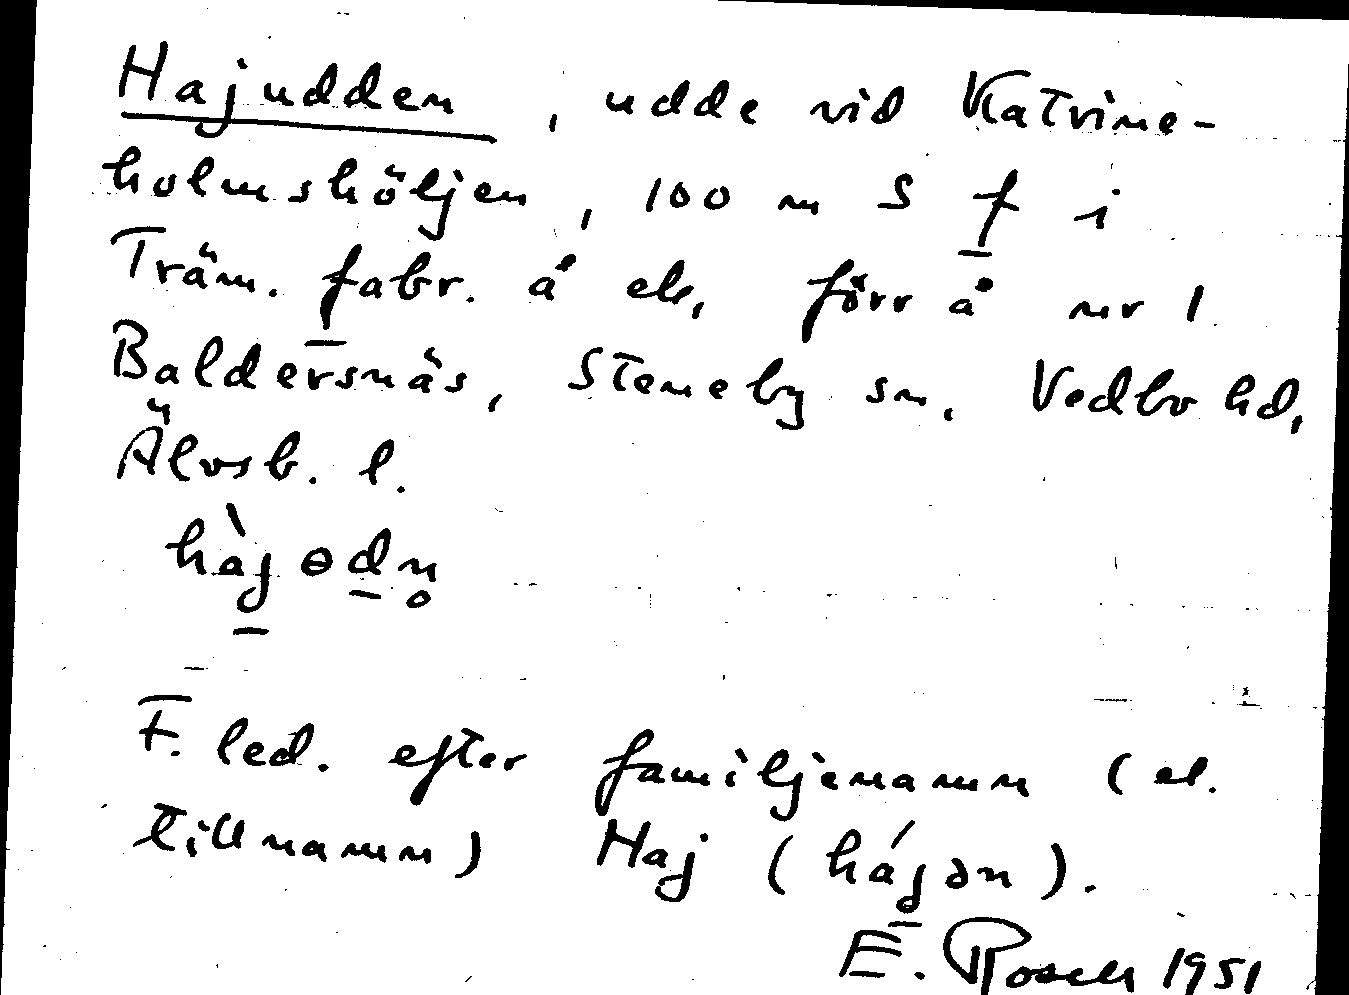 Hajudden, udde vid Katrine-
holmshöljen, 100 m S f i
Träm. fabr. å ek, förr å nr 1
Baldersnäs, Steneby sn, Vedbo hd,
Älvsb. l.
hàjɵdn̥
F. led. efter familjenamn (el.
tillnamn) Haj (hájən).
E. Rosell 1951